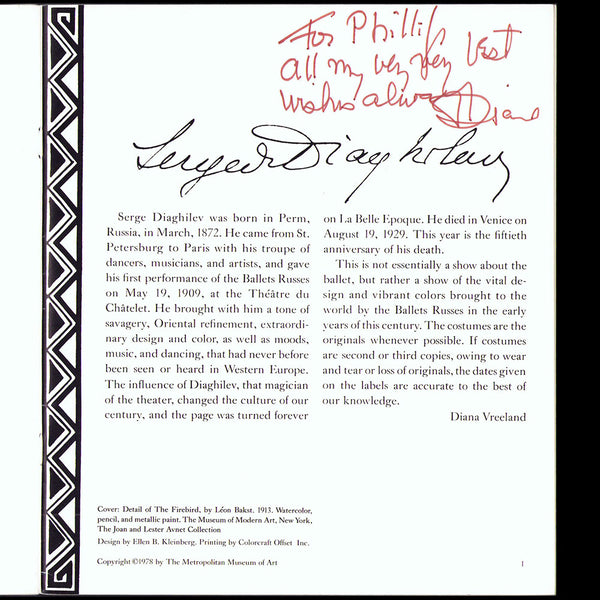 For Phillip
all my very very best
wishes always Diana
Serge de Diaghilew
Serge Diaghilev was born in Perm,
Russia, in March, 1872. He came from St.
Petersburg to Paris with his troupe of
dancers, musicians, and artists, and gave
his first performance of the Ballets Russes
on May 19, 1909, at the Théâtre du
Châtelet. He brought with him a tone of
savagery, Oriental refinement, extraordi-
nary design and color, as well as moods,
music, and dancing, that had never before
been seen or heard in Western Europe.
The influence of Diaghilev, that magician
of the theater, changed the culture of our
century, and the page was turned forever
on La Belle Epoque. He died in Venice on
August 19, 1929. This year is the fiftieth
anniversary of his death.
This is not essentially a show about the
ballet, but rather a show of the vital de-
sign and vibrant colors brought to the
world by the Ballets Russes in the early
years of this century. The costumes are the
originals whenever possible. If costumes
are second or third copies, owing to wear
and tear or loss of originals, the dates given
on the labels are accurate to the best of
our knowledge.
Diana Vreeland
Cover: Detail of The Firebird, by Léon Bakst. 1913. Watercolor,
pencil, and metallic paint. The Museum of Modern Art, New York,
The Joan and Lester Avnet Collection
Design by Ellen B. Kleinberg. Printing by Colorcraft Offset Inc.
Copyright ©1978 by The Metropolitan Museum of Art
1